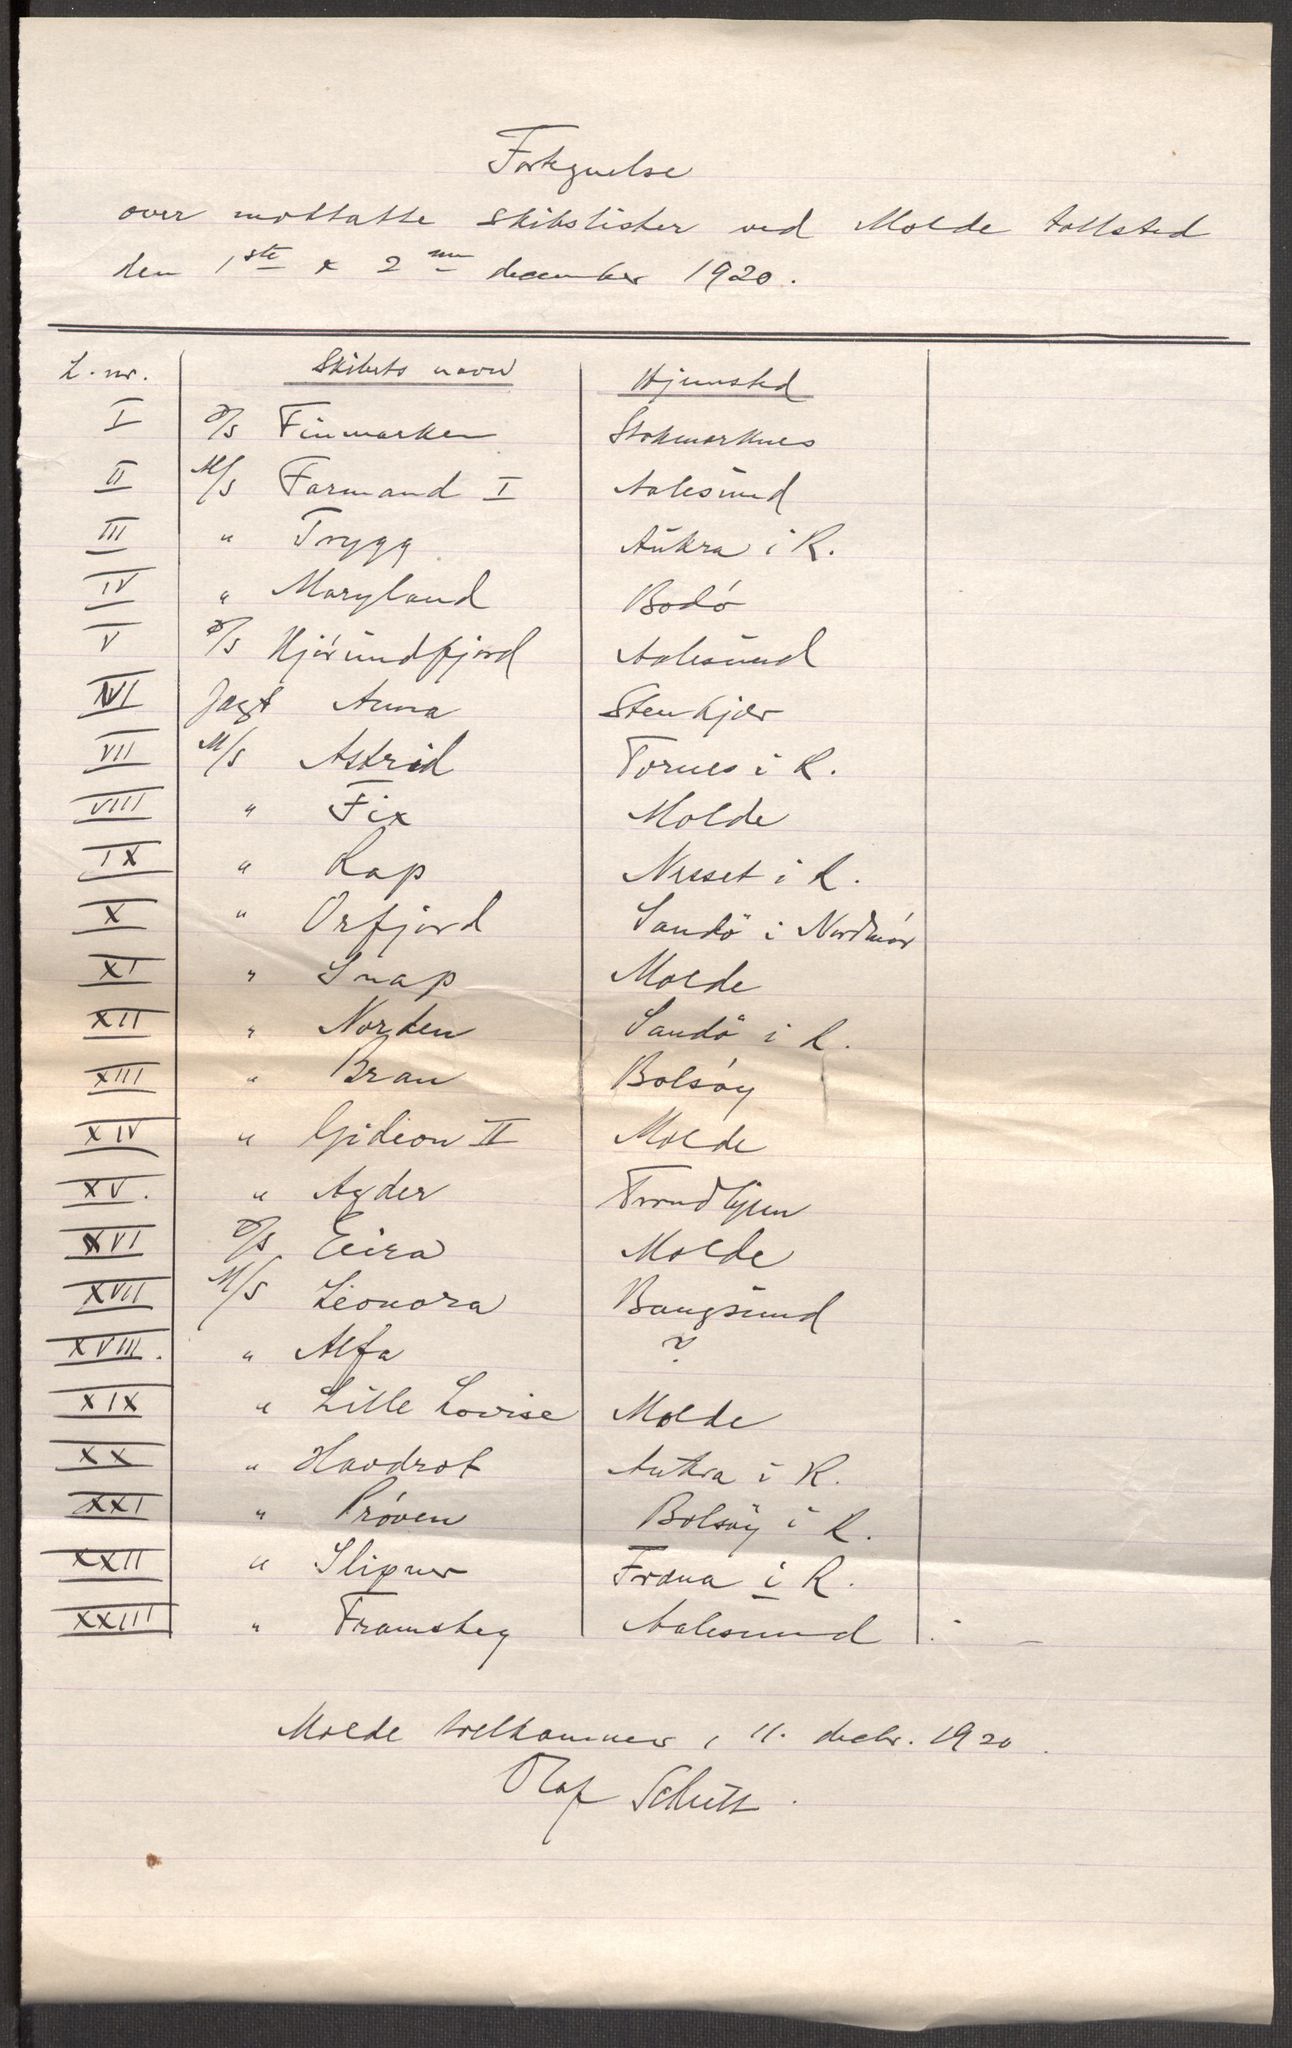 Fortegnelse
over mottatte skibslister ved Molde tollsted
den 1ste & 2nen december 1920.
L. nr. Skibets navn Hjemsted
I D/S Finmarken Stokmarknes
II M/S Farmand I Aalesund
III " Trygg Aukra i R.
IV " Maryland Bodö
V D/S Hjörundfjord Aalesund
VI Jagt Anna Stenkjær
VII M/S Astrid Tornes i R.
VIII " Fix Molde
IX " Rap Nesset i R.
X " Orfjord Sandö i Nordmör
XI " Snap Molde
XII " Norden Sandö i R.
XIII " Bran Bolsöy
XIV " Gideon II Molde
XV. " Agder Trondhjem
XVI D/S Eira Molde
XVII M/S Leonora Bangsund
XVIII. " Alfa ?
XIX " Lille Lovise Molde
XX " Havdrot Aukra i R.
XXI " Prøven Bolsöy i R.
XXII " Slipner Fræna i R.
XXIII " Framsteg Aalesund
Molde tollkammer, 11. decbr. 1920.
Olaf Schütt.